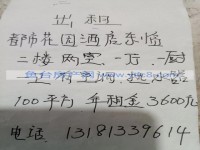 出租
都市花园酒店东临
二楼两室一厅一厨
100平方 年租金3600元
电话 13181339614